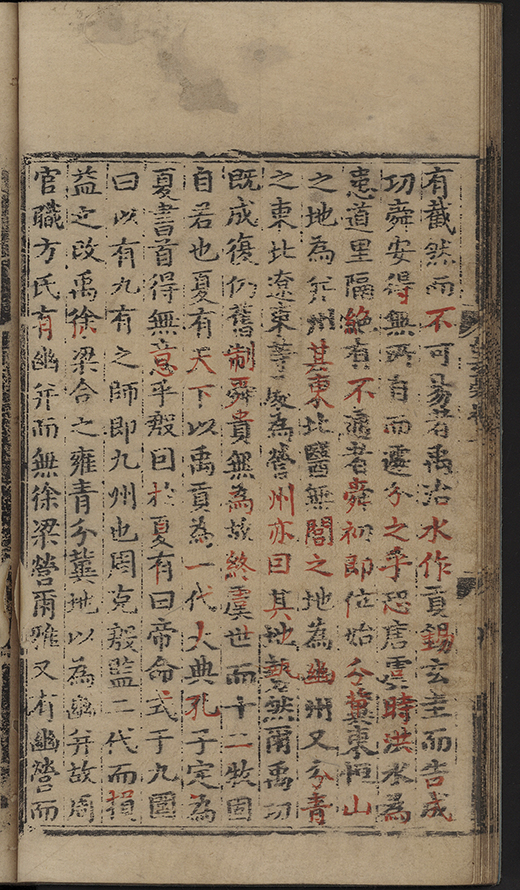 有截然而不可易者禹治水作貢錫玄圭而告成
功舜安得無所自而遽分之乎恐唐虞時洪水為
患道里隔絕有不者舜初即位始分冀東恒山
之地為并州其東北醫無閭之地為幽州又分青
之東北遼東等處為營州亦曰其地勢然爾禹功
既成復仍舊制舜貴無為故終虞世而十二牧固
自若也夏有天下以禹貢為一代大典孔子定為
夏書首得無意乎殷曰於夏有曰帝命式于九圍
曰以有九有之師即九州也周克殷監二代而損
益之改禹徐梁合之雍青分冀地以為幽并故周
官職方氏有幽并而無徐梁營爾雅又有幽營而